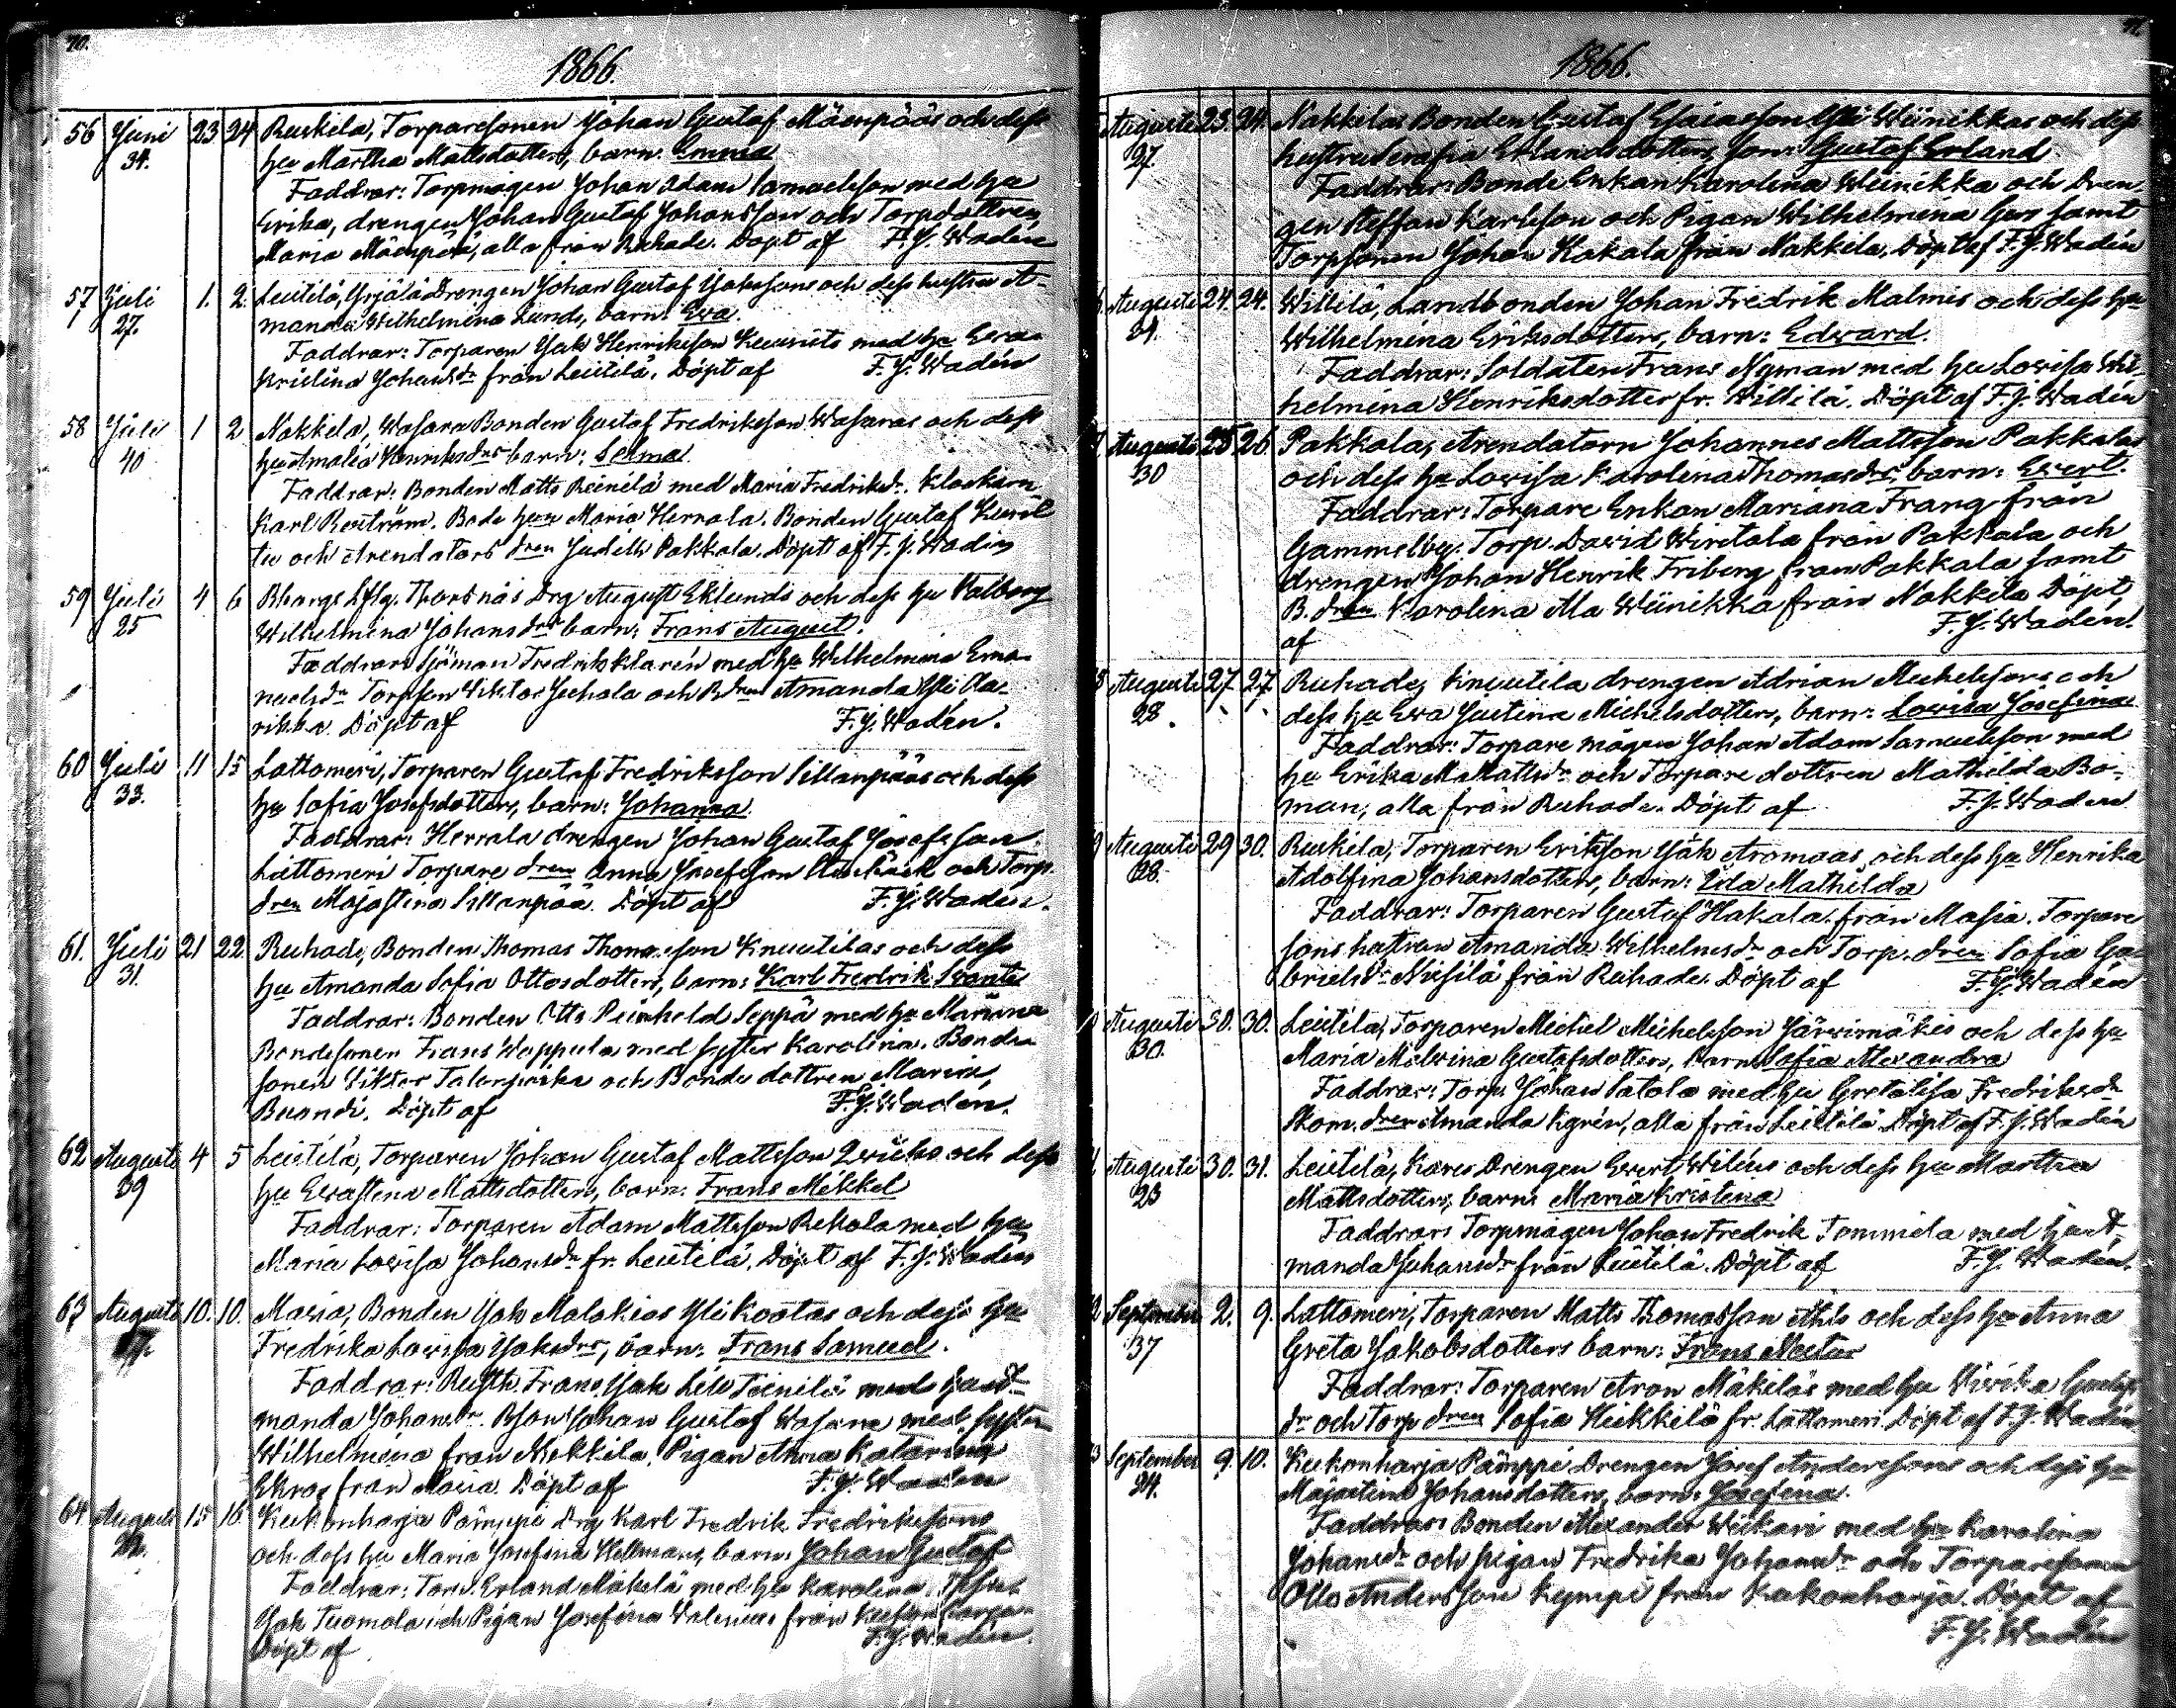 70.
1866.
56 Juni 23 24 Ruskila, Torparesonen Johan Gustaf Mäenpääs och dess
34. hu Martha Mattsdotters, barn: Emma
Faddrar: Torpmågen Johan Adam Samuelsson med hu
Erika, drengen Johan Gustaf Johansson och Torpdottren
Maria Mäenpää, alla från Ruhade. Döpt af F. J. Wadén
57 Juli 1. 2. Leistilä, Yrjälä Drengen Johan Gustaf Jakssons och dess hustru A-
27. manda Wilhelmina Lunds, barn: Eva.
Faddrar: Torparen Jak Henriksson med hu Eva
Kristina Johansdr från Leistilä. Döpt af F. J. Wadén
58 Juli 1 2 Nakkila, Wasara Bonden Gustaf Fredriksson Wasaras och dess
40 hu Amalia Henriksdrs barn: Selma.
Faddrar: Bonden Matts Reinilä med Maria Fredriksdr. Klockarn
Karl Roström. Bode hun Maria Herrala. Bonden Gustaf
och Arendators dren Judith Pakkala. Döpt af F. J. Wadén
59 Juli 4 6 Lflg. Thorsnäs Drg August Eklunds och dess hu Walborg
25 Wilhelmina Johansdrs barn: Frans August.
Faddrar: Sjöman Fredrik Klarén med hu Wilhelmina Ema-
nuelsdr Torpson Viktor Juhola och Bdren Amanda Yli Cla-
rikka. Döpt af F. J. Wadén.
60 Juli 11 15 Lattomeri, Torparen Gustaf Fredriksson Sillanpääs och dess
33. hu Sofia Josefsdotters, barn: Johanna.
Faddrar: Herrala drengen Johan Gustaf Josefsson.
Lattomeri Torpare dren Anna Josefsson och Torp.
dren Majastina Sillanpää. Döpt af F. J. Wadén.
61. Juli 21 22. Ruhade, Bonden Thomas Thomasson Knuutilas och dess
31. hu Amanda Sofia Ottosdotters, barn: Karl Fredrik Svante
Faddrar: Bonden Otto Reinhold Seppä med hu Mariana
Bondesonen Frans Wappula med syster Karolina. Bonde
sonen Viktor och Bonde dottren Maria
Döpt af F. J. Wadén.
62 Augusti 4 5 Leistilä, Torparen Johan Gustaf Mattsson och dess
29 hu Evastina Mattsdotters, barn: Frans Mikkel
Faddrar: Torparen Adam Mattsson Rekola med hu
Maria Lovisa Johansdr fr. Leistilä. Döpt af F. J. Wadén
63 Augusti 10. 10. Masia, Bonden Jak Malakias Yli Kootas och dess hu
Fredrika Lovisa Jaksdrs, barn: Frans Samuel.
Faddrar: Rusth. Frans Jak Leinilä med hu A-
manda Johansdr. Bson Johan Gustaf Wasara med syster
Wilhelmina från Nakkila, Pigan Anna Katarina
från Masia. Döpt af F. J. Wadén
64. Augusti 15 16. Kukonharja Pämppi Drg Karl Fredrik Fredrikssons
och dess hu Maria Josefina Hellmans, barn: Johan Gustaf
Faddrar: Torp. Erland Mäkelä med hu Karolina.
Jak Tuomola och Pigan Josefina Walenius från Kukonharja
Döpt af F. J. Wadén.
1866.
Augusti 23. 24. Nakkilas Bonden Gustaf Esaiasson Yli Wiinikkas och dess
27. hustru Serafia Erlandsdotters, son: Gustaf Erland
Faddrar: Bonde Enkan Karolina Wiinikka och Dren-
gen Steffan Karlsson och Pigan Wilhelmina samt
Torpsonen Johan Hakala från Nakkila. Döpt af F. J. Wadén
Augusti 24. 24. Willilä, Landbonden Johan Fredrik Malmis och dess hu
Wilhelmina Eriksdotters, barn: Edvard.
Faddrar: Soldaten Frans Nyman med hu Lovisa Wil-
helmina Henriksdotter fr. Willilä. Döpt af F. J. Wadén
Augusti 25 26. Pakkala, Arendatorn Johannes Mattsson Pakkalas
30 och dess hu Lovisa Karolina Thomasdrs, barn: Evert.
Faddrar: Torpare Enkan Mariana Frang från
Gammelby. Torp. David Wiretala från Pakkala och
drengen Johan Henrik Friberg från Pakkala samt
B. dren Karolina Ala Wiinikka från Nakkila Döpt
af F. J. Wadén.
Augusti 27 27. Ruhade, Knuutila drengen Adrian Michelssons och
28. dess hu Eva Justina Michelsdotters, barn: Lovisa Josefina
Faddrar: Torpare mågen Johan Adam Samuelsson med
hu Erika Mattsdr och Torpare dottren Mathilda Bo-
man, alla från Ruhade. Döpt af F. J. Wadén
Augusti 29 30. Ruskila, Torparen Eriksson Jak Aromaas och dess hu Henrika
28. Adolfina Johansdotters, barn: Ida Mathilda
Faddrar: Torparen Gustaf Hakala från Masia. Torpare
sons hustrun Amanda Wilhelmsdr och Torp. dren Sofia Ga-
brielsdr från Ruhade. Döpt af F. J. Wadén
Augusti 30. 30. Leistilä, Torparen Michel Michelsson Järvimäkis och dess hu
30. Maria Malvina Gustafsdotters, barn: Sofia Alexandra
Faddrar: Torp. Johan Satala med hu Greta Lisa Fredriksdr
Skom. dren Amanda, alla från Leistilä Döpt af F. J. Wadén
Augusti 30. 31. Leistilä, Kares Drengen Evert Wiléns och dess hu Martha
23 Mattsdotters, barn: Maria Kristina
Faddrar: Torpmågen Johan Fredrik Tommila med hu A-
manda Johansdr från Leistilä. Döpt af F. J. Wadén.
September 2. 9. Lattomeri, Torparen Matts Thomasson Ahls och dess hu Anna
37 Greta Jakobsdotters barn: Frans Nestor
Faddrar: Torparen Aron Mäkeläs med hu
dr och Torp dren Sofia Heikkilä fr. Lattomeri. Döpt af F. J. Wadén
September 9. 10. Kukonharja Pämppi Drengen Josef Anderssons och dess hu
24. Majastina Johansdotters, barn: Josefina.
Faddrar: Bonden Alexander Wiikari med hu Karolina
Johansdr och pigan Fredrika Johansdr och Torparesonen
Otto Andersson Kympi från Kukonharja. Döpt af
F. J. Wadén